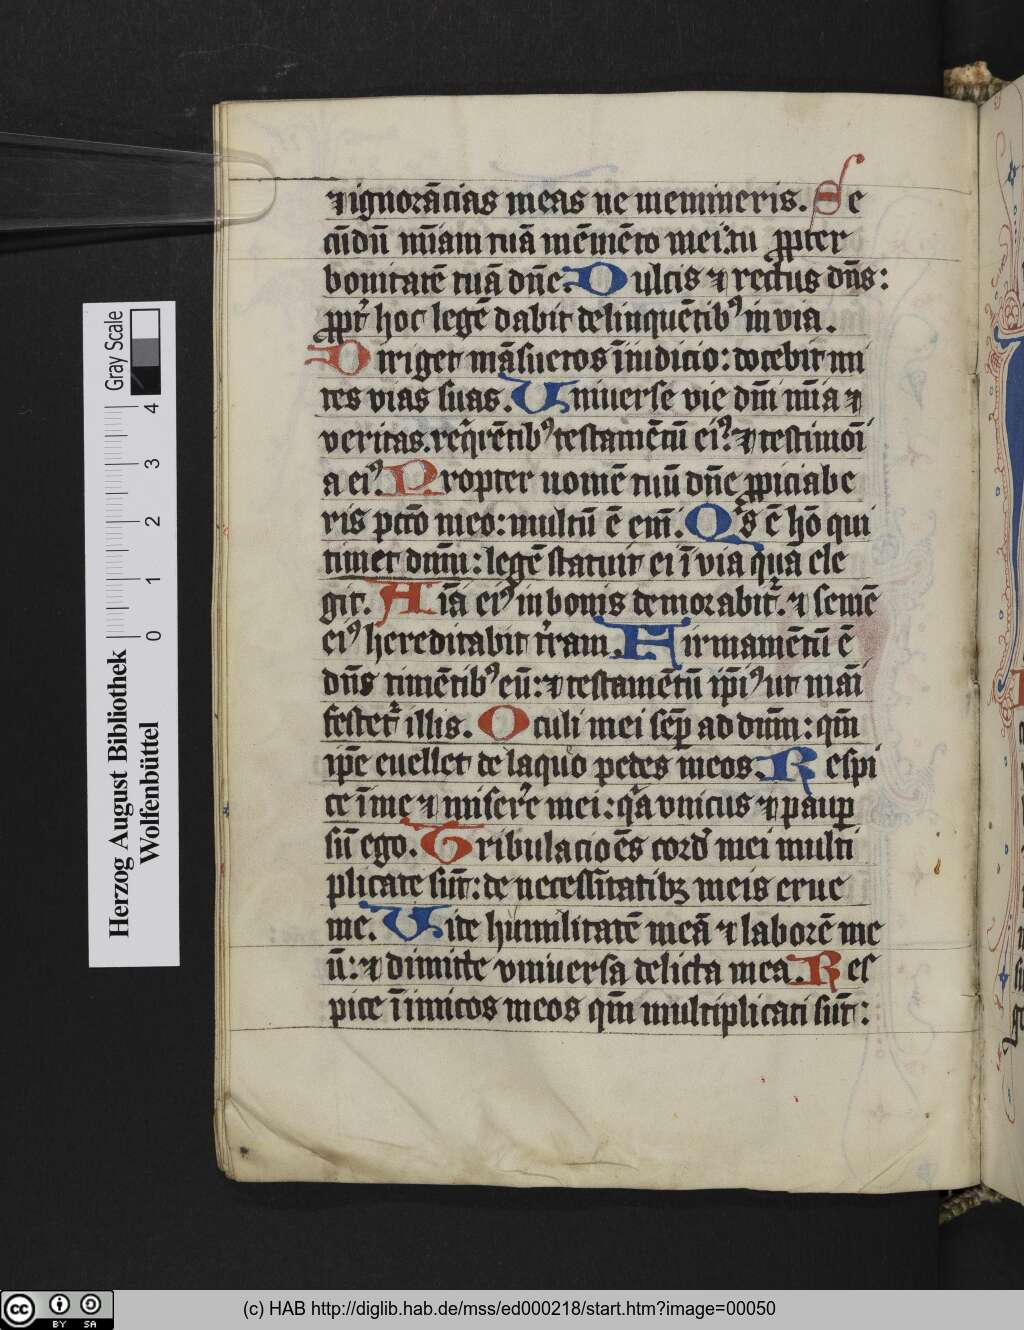 ⁊ ignorãcias meas ne memineris. Se
cũdũ mĩam tuã mẽmẽto mei: tu ꝓpter
bonitatẽ tuã dñe. Dulcis ⁊ rectus dñs:
ꝓpt̃ hoc legẽ dabit delinquẽtibꝰ in via.
Diriget mãsuetos ĩ iudicio: docebit mi
tes vias suas. Vniuerse vie dñi mĩa ⁊
veritas. reqͥrẽtibꝰ testamẽtũ eiꝰ ⁊ testimoĩ
a eiꝰ. Propter nomẽ tuũ dñe ꝓpiciabe
ris pctõ meo: multũ ẽ em̃. Qͥs ẽ hõ qui
timet dnm̃: legẽ statuit ei ĩ via quã ele
git. Aĩa eiꝰ in bonis demorabit̃. ⁊ semẽ
eiꝰ hereditabit t̃ram. Firmamẽtũ ẽ
dñs timẽtibꝰ eũ: ⁊ testamẽtũ ip̃iꝰ ut mãi
festet̃ illis. Oculi mei sẽp ad dnm̃: qm̃
ip̃e euellet de laquo pedes meos. Respi
ce ĩ me ⁊ miser̃e mei: qͥa vnicus ⁊ paup̱
sũ ego. Tribulacio ẽs cord̃ mei multi
plicate sũt: de necessitatibꝫ meis erue
me. Vide humilitatẽ meã ⁊ laborẽ me
ũ: ⁊ dimitte vniuersa delicta mea. Res
pice ĩimicos meos qm̃ multiplicati sũt:
Gray Scale
0 1 2 3 4
Herzog August Bibliothek
Wolfenbüttel
cc BY SA
(c) HAB http://diglib.hab.de/mss/ed000218/start.htm?image=00050